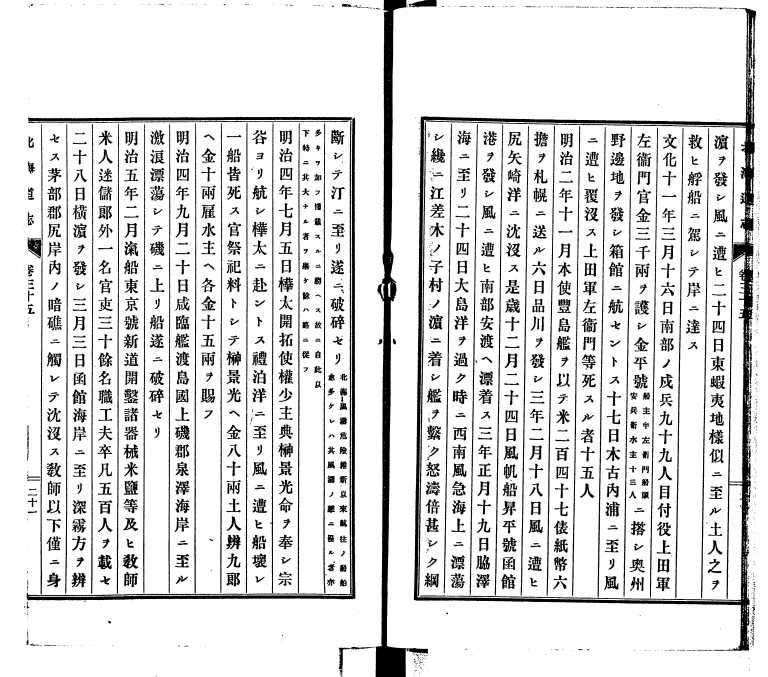 濵ヲ發シ風ニ遭ヒ二十四日東蝦夷地様似ニ至ル土人之ヲ
救ヒ艀船ニ駕シテ岸ニ達ス
文化十一年三月十六日南部ノ戍兵九十九人目付役上田軍
左衞門官金三千兩ヲ護シ金平號船主中左衞門船頭安兵衞水主十三人ニ搭シ奥州
野邊地ヲ發シ箱館ニ航セントス十七日木古内浦ニ至リ風
ニ遭ヒ覆沒ス上田軍左衞門等死スル者十五人
明治二年十一月本使豐島艦ヲ以テ米二百四十七俵紙幣六
擔ヲ札幌ニ送ル六日品川ヲ發シ三年二月十八日風ニ遭ヒ
尻矢崎洋ニ沈沒ス是歳十二月二十四日風帆船昇平號函館
港ヲ發シ風ニ遭ヒ南部安渡ヘ漂着ス三年正月十九日脇澤
海ニ至リ二十四日大島洋ヲ過ク時ニ西南風急海上ニ漂蕩
シ纔ニ江差木ノ子村ノ濵ニ着シ艦ヲ繋ク怒濤倍甚シク綱
斷シテ汀ニ至リ遂ニ破碎セリ北海ノ風濤危險維新以來航往ノ船舶
多キヲ加フ悉載スルニ勝ヘス故ニ自此以
下特ニ其大ナル者ヲ擧ケ餘ハ略ニ從フ
明治四年七月五日樺太開拓使權少主典榊景光命ヲ奉シ宗
谷ヨリ航シ樺太ニ赴ントス禮泊洋ニ至リ風ニ遭ヒ船壞レ
一船皆死ス官祭祀料トシテ榊景光ヘ金八十兩土人辨九郎
ヘ金十兩雇水主ヘ各金十五兩ヲ賜フ
明治四年九月二十日咸臨艦渡島國上磯郡泉澤海岸ニ至ル
激浪漂蕩シテ磯ニ上リ船遂ニ破碎セリ
明治五年二月滊船東京號新道開鑿諸器械米鹽等及ヒ敎師
米人迷儲郎外一名官吏三十餘名職工夫卒凡五百人ヲ載セ
二十八日橫濵ヲ發シ三月三日函館海岸ニ至リ深霧方ヲ辨
セス茅部郡尻岸内ノ暗礁ニ觸レテ沈沒ス敎師以下僅ニ身
北海道志
卷三十五
二十一